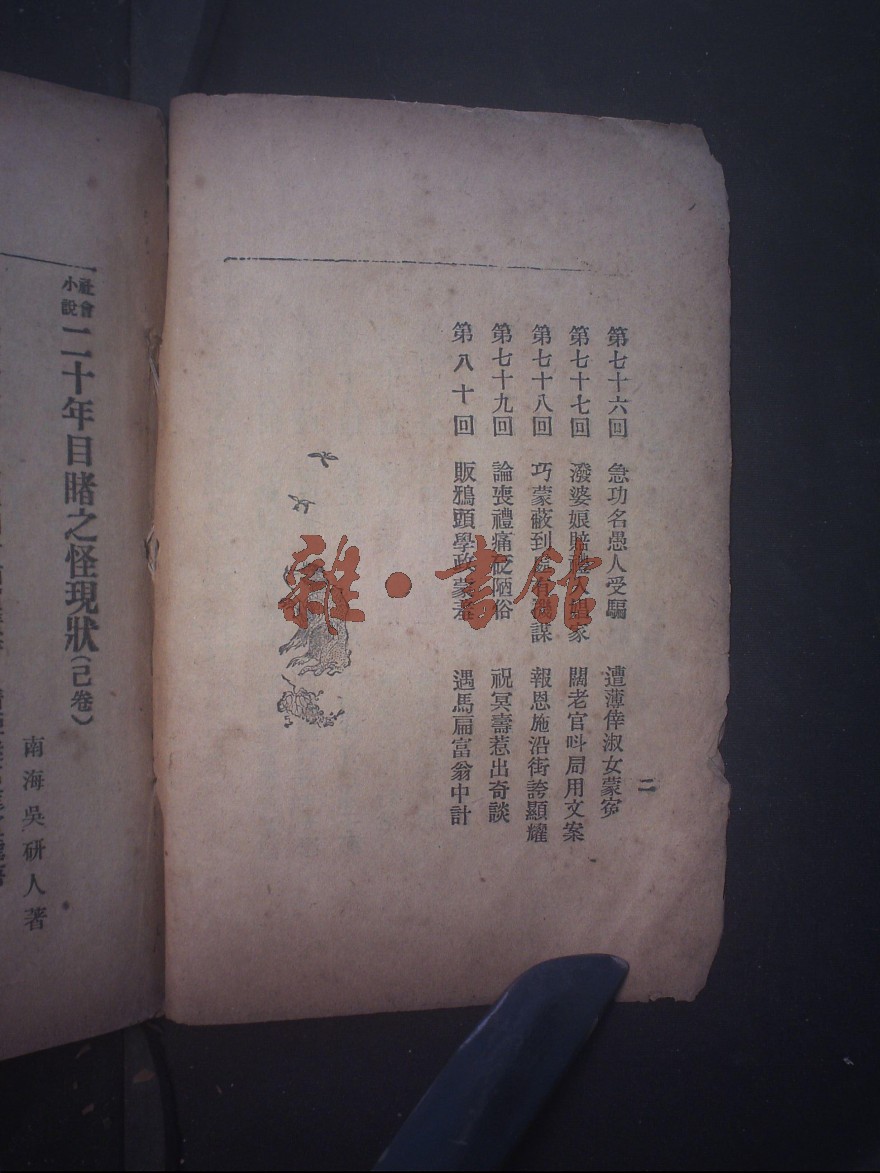 二
第七十六回 急功名愚人受騙 遭薄倖淑女蒙寃
第七十七回 潑婆娘賠禮入娼家 闊老官叫局用文案
第七十八回 巧蒙蔽到處有機謀 報恩施沿街誇顯耀
第七十九回 論喪禮痛砭陋俗 祝冥壽惹出奇談
第八十回 販鴉頭學政蒙羞 遇馬扁富翁中計
雜·書館
社會小說 二十年目睹之怪現狀（己卷）
南海吳研人著